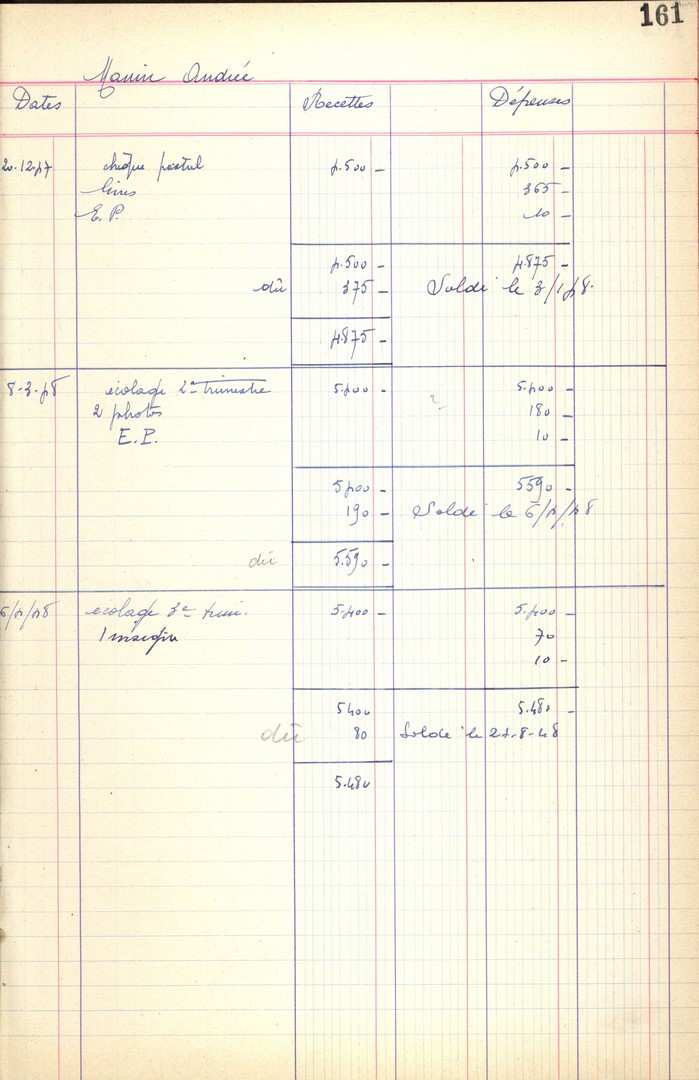 161
Manin Andrée
Dates Recettes Dépenses
20.12.47 chèque postal 4.500 - 4.500 -
livres 365 -
E.P. 10 -
4.500 - 4.875 -
dû 375 - Soldé le 3/1/48.
4.875 -
8-3-48 écolage 2e trimestre 5.400 - 5.400 -
2 photos 180 -
E.P. 10 -
5.400 - 5590 -
190 - Soldé le 6/4/48
dû 5.590 -
6/4/48 écolage 3e trim. 5.400 - 5.400 -
1 insigne 70
10 -
5400 5.480 -
dû 80 Soldé le 21-8-48
5.480